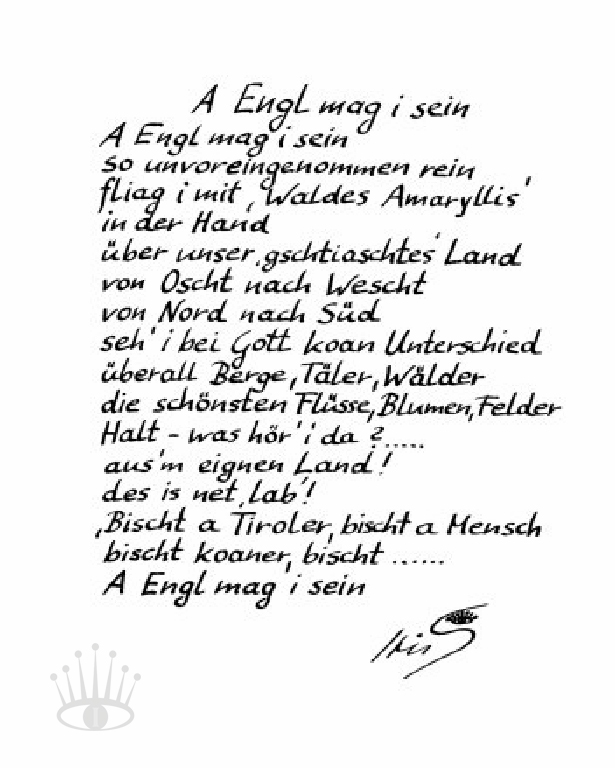 A Engl mag i sein
A Engl mag i sein
so unvoreingenommen rein
fliag i mit ‚Waldes Amaryllis'
in der Hand
über unser ‚gschtiaschtes' Land
von Oscht nach Wescht
von Nord nach Süd
seh' i bei Gott koan Unterschied
überall Berge, Täler, Wälder
die schönsten Flüsse, Blumen, Felder
Halt - was hör' i da ?.....
aus'm eignen Land!
des is net ‚lab'!
‚Bischt a Tiroler, bischt a Mensch
bischt koaner, bischt ......
A Engl mag i sein